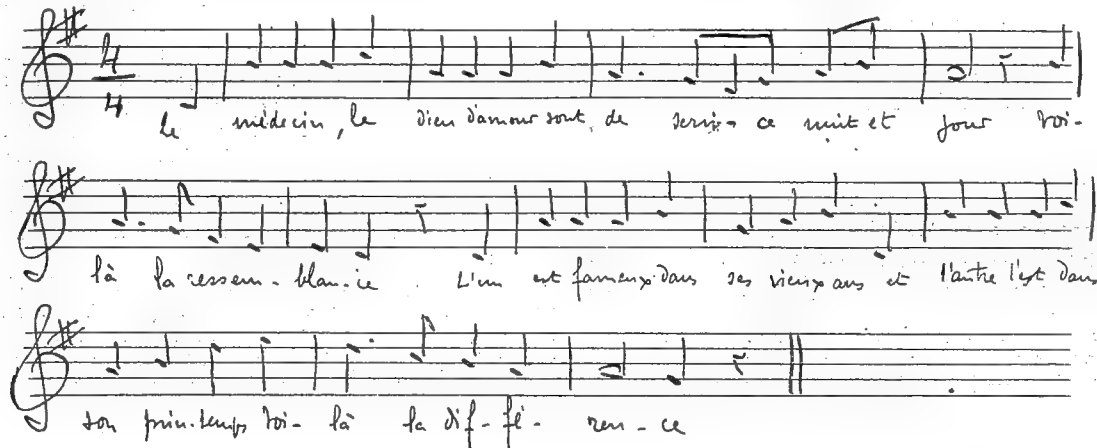 4
4
le médecin, le dieu d'amour sont de servi-ce nuit et jour voi-
là la ressem-blan-ce L'un est fameux dans ses vieux ans et l'autre l'est dans
son prin-temps voi-là la dif-fé-ren-ce